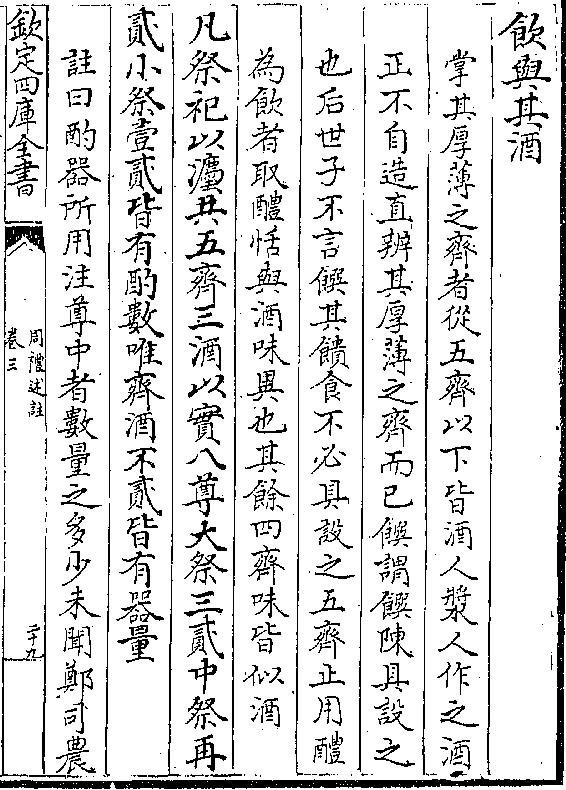 飲與其酒
掌其厚薄之齊者從五齊以下皆酒人漿人作之酒
正不自造直辨其厚薄之齊而已饌謂饌陳具設之
也后世子不言饌其饋食不必具設之五齊止用醴
為飲者取醴恬與酒味異也其餘四齊味皆似酒
凡祭祀以灋共五齊三酒以實八尊大祭三貳中祭再
貳小祭壹貳皆有酌數唯齊酒不貳皆有器量
註曰酌器所用注尊中者數量之多少未聞鄭司農
欽定四庫全書
周禮述註
卷三
二十九